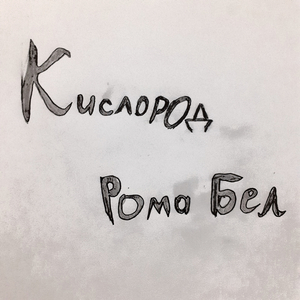 Кислород
Рома Бел